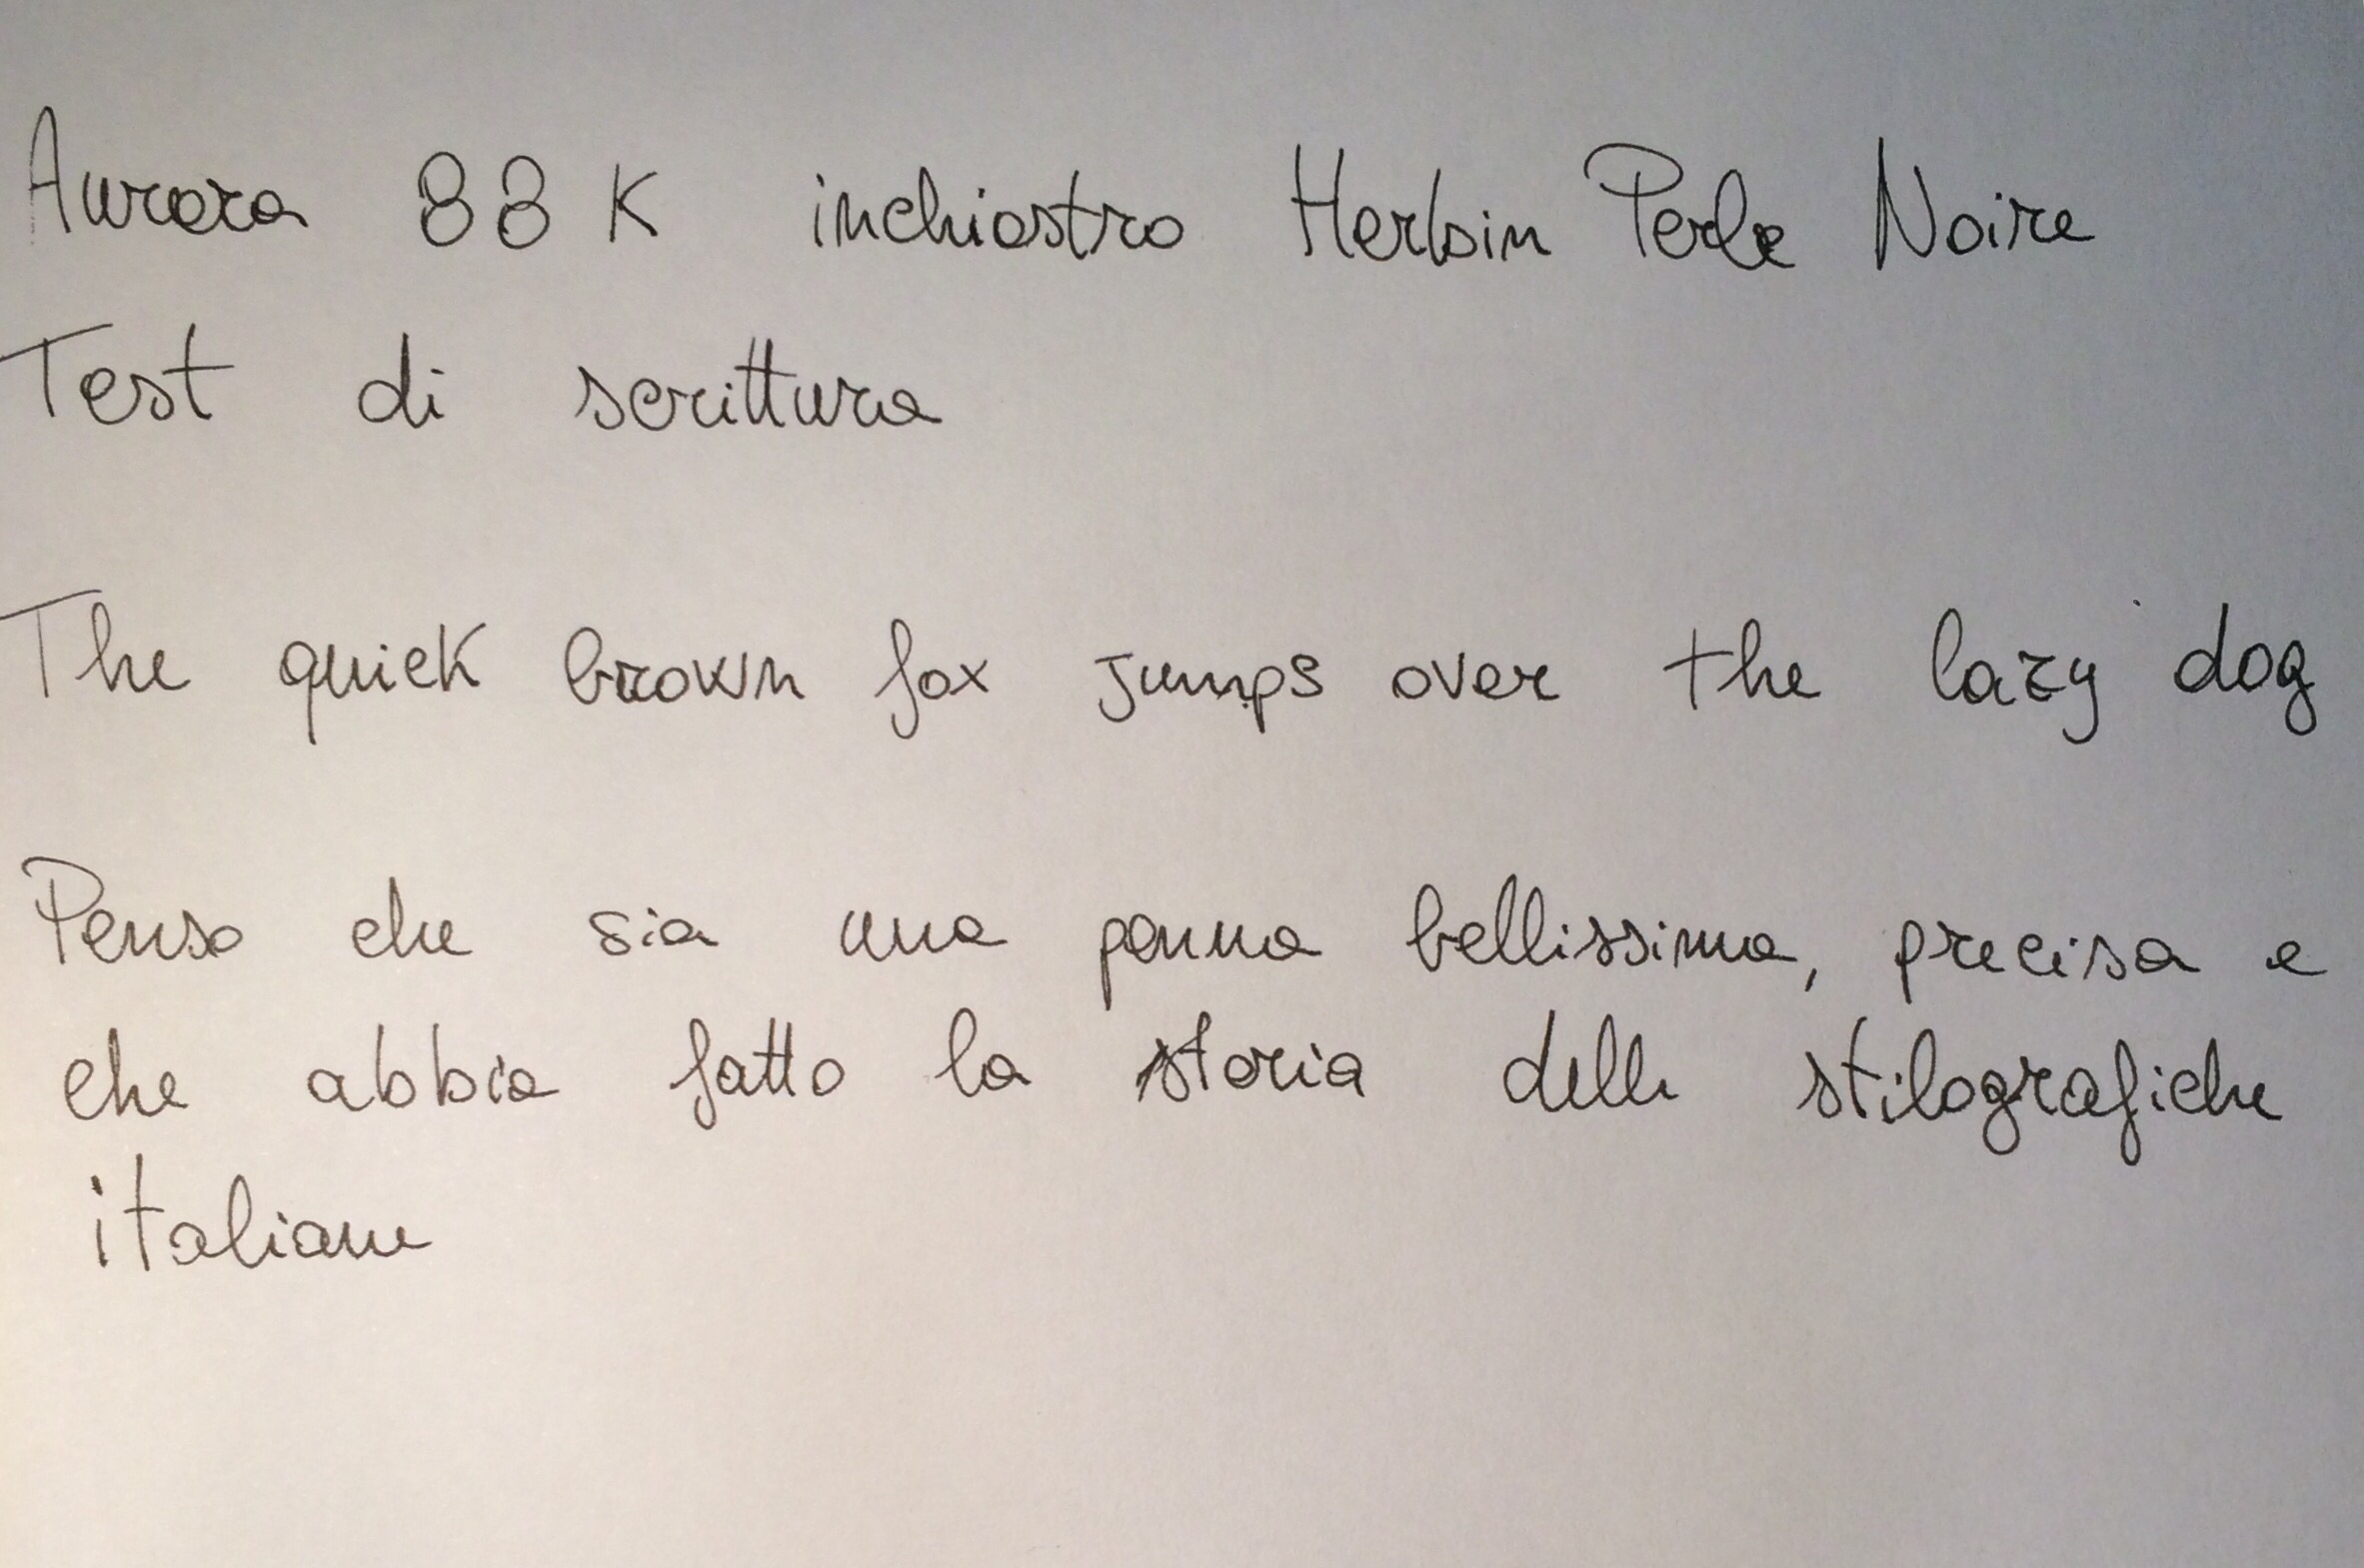 Aurora 88 K inchiostro Herbin Perle Noire
Test di scrittura
The quick brown fox jumps over the lazy dog
Penso che sia una penna bellissima, precisa e
che abbia fatto la storia delle stilografiche
italiane